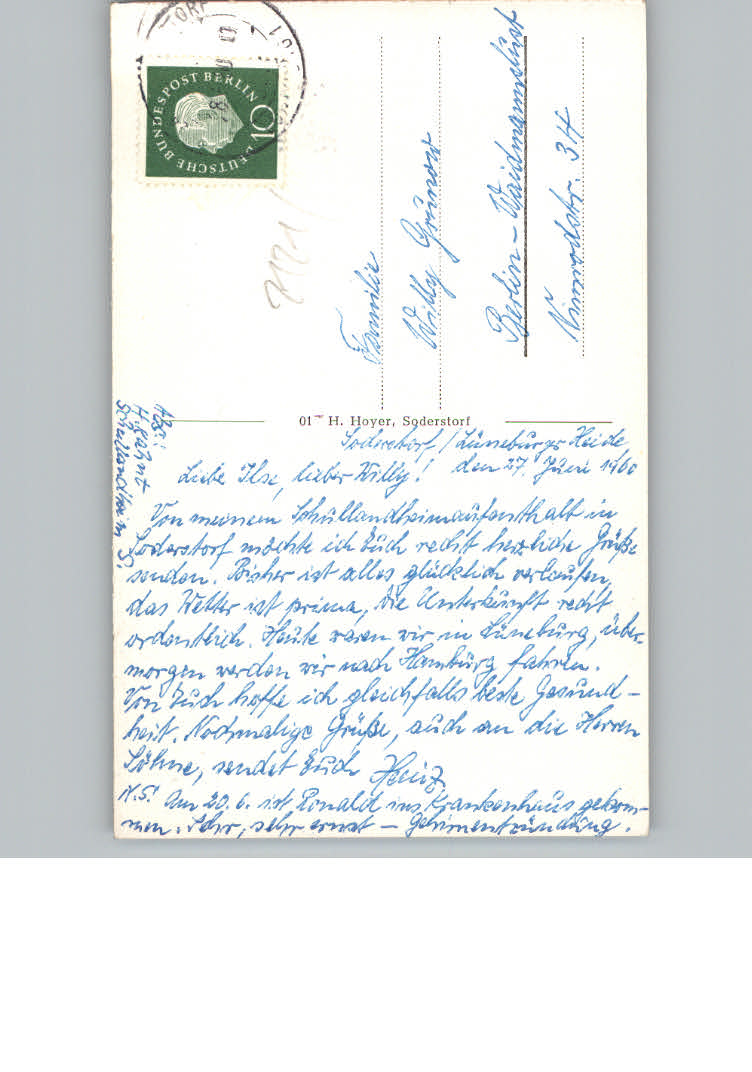 DEUTSCHE BUNDESPOST BERLIN
10
Familie
Willy Grünow
Berlin-Waidmannslust
Nimrodstr. 34
01 H. Hoyer, Soderstorf
Abs:
Schullandheim S.
Soderstorf/Lüneburger Heide
den 27. Juni 1960
Liebe Ilse, lieber Willy!
Von meinem Schullandheimaufenthalt in
Soderstorf möchte ich Euch recht herzliche Grüße
senden. Bisher ist alles glücklich verlaufen,
das Wetter ist prima, die Unterkunft recht
ordentlich. Heute waren wir in Lüneburg, über-
morgen werden wir nach Hamburg fahren.
Von Euch hoffe ich gleichfalls beste Gesund-
heit. Nochmalige Grüße, auch an die Herren
Söhne, sendet Euch Heinz
N.S! Am 20.6. ist Ronald ins Krankenhaus gekom-
men. Sehr, sehr ernst – Gehirnentzündung.